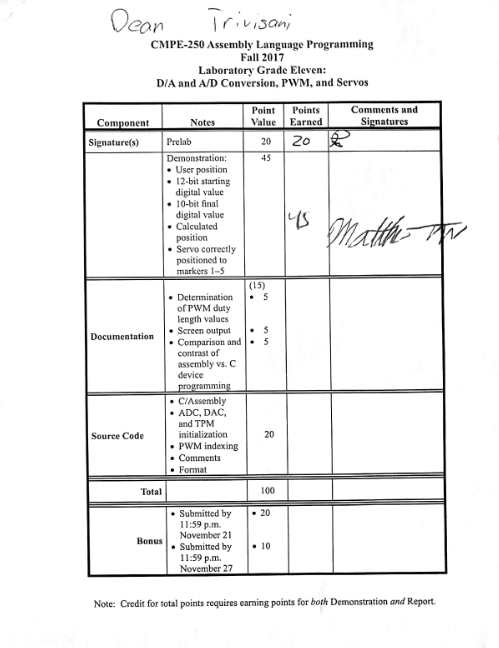 Dean Trivisani
CMPE-250 Assembly Language Programming
Fall 2017
Laboratory Grade Eleven:
D/A and A/D Conversion, PWM, and Servos
Component Notes Point Value Points Earned Comments and Signatures
Signature(s) Prelab 20 20
Demonstration: 45
• User position
• 12-bit starting
digital value
• 10-bit final
digital value
• Calculated
position
• Servo correctly
positioned to
markers 1–5
45
Matthew
Documentation
(15)
• Determination • 5
of PWM duty
length values
• Screen output • 5
• Comparison and • 5
contrast of
assembly vs. C
device
programming
Source Code
• C/Assembly
• ADC, DAC,
and TPM
initialization 20
• PWM indexing
• Comments
• Format
Total 100
Bonus
• Submitted by • 20
11:59 p.m.
November 21
• Submitted by • 10
11:59 p.m.
November 27
Note: Credit for total points requires earning points for both Demonstration and Report.